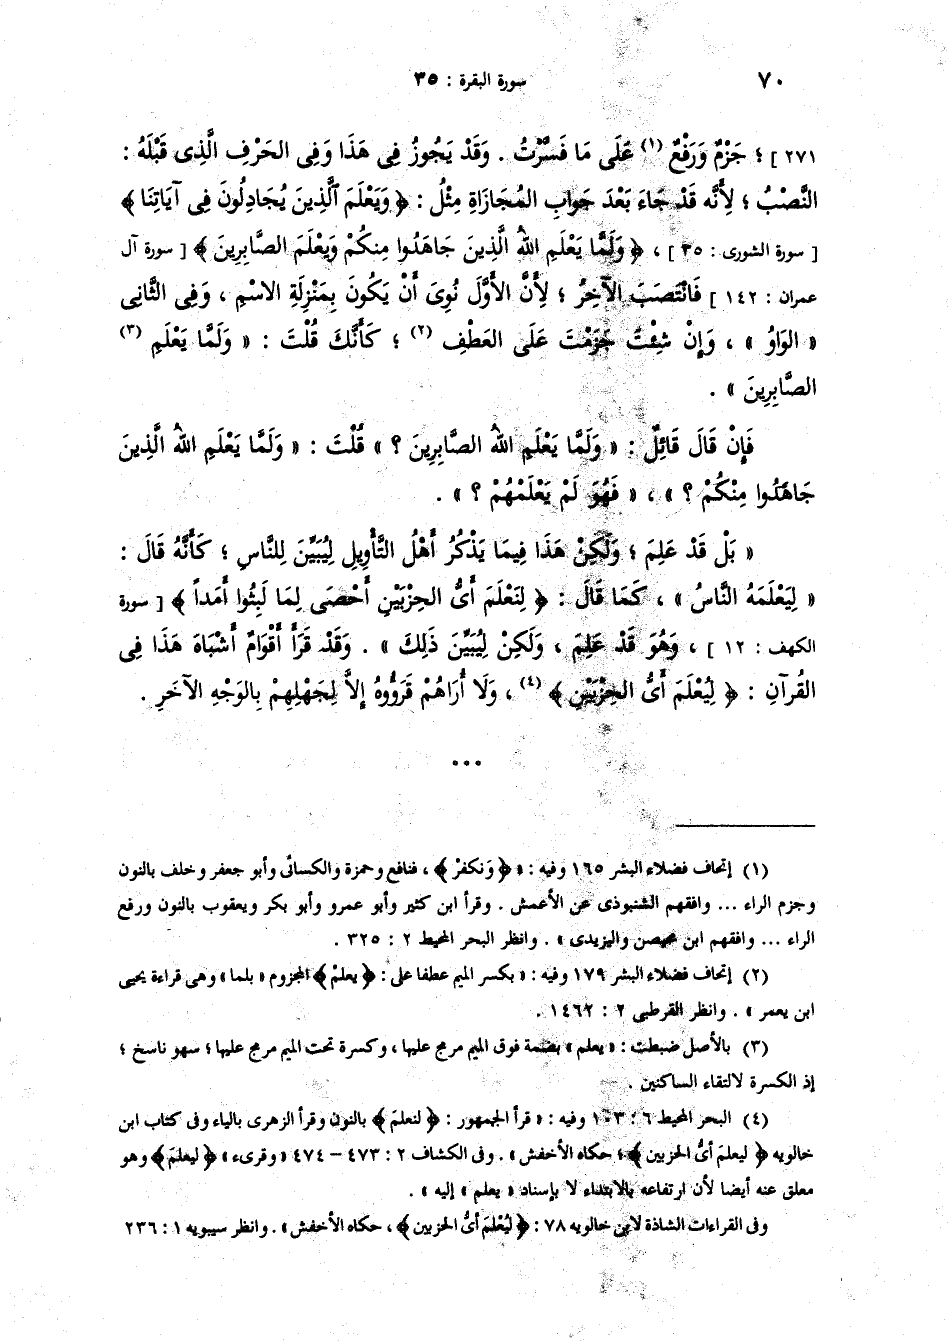 ٧٠ سورة البقرة : ٣٥
٢٧١ ] ؛ جَزْمٌ وَرَفْعٌ (١) عَلَى مَا فَسَّرْتُ . وَقَدْ يَجُوزُ فِى هَذَا وَفِى الحَرْفِ الَّذِى قَبْلَهُ :
النَّصْبُ ؛ لِأَنَّه قَدْ جَاءَ بَعْدَ جَوابِ المُجَازَاةِ مِثْلُ : ﴿ وَيَعْلَمَ ٱلَّذِينَ يُجَادِلُونَ فِى آيَاتِنَا ﴾
[ سورة الشورى : ٣٥ ] ، ﴿ وَلَمَّا يَعْلَمِ اللهُ الَّذِينَ جَاهَدُوا مِنكُمْ وَيَعْلَمَ الصَّابِرِينَ ﴾ [ سورة آل
عمران : ١٤٢ ] فَانْتَصَبَ الآخِرُ ؛ لِأَنَّ الأَوَّلَ نُوِىَ أَنْ يَكُونَ بِمَنْزِلَةِ الاسْمِ ، وَفِى الثَّانِى
« الوَاوُ » ، وَإِنْ شِئْتَ جَزَمْتَ عَلَى العَطْفِ (٢) ؛ كَأَنَّكَ قُلْتَ : « وَلَمَّا يَعْلَمِ (٣)
الصَّابِرِينَ » .
فَإِنْ قَالَ قَائِلٌ : « وَلَمَّا يَعْلَمِ اللهُ الصَّابِرِينَ ؟ » قُلْتَ : « وَلَمَّا يَعْلَمِ اللهُ الَّذِينَ
جَاهَدُوا مِنْكُمْ ؟ » ، « فَهُوَ لَمْ يَعْلَمْهُمْ ؟ » .
« بَلْ قَدْ عَلِمَ ؛ وَلَكِنْ هَذَا فِيمَا يَذْكُرُ أَهْلُ التَّأْوِيلِ لِيُبَيِّنَ لِلنَّاسِ ؛ كَأَنَّهُ قَالَ :
« لِيَعْلَمَهُ النَّاسُ » ، كَمَا قَالَ : ﴿ لِنَعْلَمَ أَىُّ الحِزْبَيْنِ أَحْصَى لِمَا لَبِثُوا أَمَداً ﴾ [ سورة
الكهف : ١٢ ] ، وَهُوَ قَدْ عَلِمَ ، وَلَكِنْ لِيُبَيِّنَ ذَلِكَ » . وَقَدْ قَرَأَ أَقْوَامٌ أَشْبَاهَ هَذَا فِى
القُرآنِ : ﴿ لِيُعْلَمَ أَىُّ الحِزْبَيْنِ ﴾ (٤) ، وَلَا أُرَاهُمْ قَرَؤُوهُ إِلاَّ لِجَهْلِهِمْ بِالوَجْهِ الآخَرِ .
...
(١) إتحاف فضلاء البشر ١٦٥ وفيه : « ﴿ وَنكفرْ ﴾ ، فنافع وحمزة والكسائى وأبو جعفر وخلف بالنون
وجزم الراء ... وافقهم الشنبوذى عن الأعمش . وقرأ ابن كثير وأبو عمرو وأبو بكر ويعقوب بالنون ورفع
الراء ... وافقهم ابن محيصن واليزيدى » . وانظر البحر المحيط ٢ : ٣٢٥ .
(٢) إتحاف فضلاء البشر ١٧٩ وفيه : « بكسر الميم عطفا على : ﴿ يعلمْ ﴾ المجزوم « بلما » وهى قراءة يحيى
ابن يعمر » . وانظر القرطبى ٢ : ١٤٦٢ .
(٣) بالأصل ضبطت : « يعلم » بضمة فوق الميم مرمج عليها ، وكسرة تحت الميم مرمج عليها ؛ سهو ناسخ ؛
إذ الكسرة لالتقاء الساكنين .
(٤) البحر المحيط ٦ : ١٠٣ وفيه : « قرأ الجمهور : ﴿ لنعلمَ ﴾ بالنون وقرأ الزهرى بالياء وفى كتاب ابن
خالويه ﴿ ليعلمَ أىُّ الحزبين ﴾ ؛ حكاه الأخفش » . وفى الكشاف ٢ : ٤٧٣ – ٤٧٤ « وقرىء » ﴿ ليعلمَ ﴾ وهو
معلق عنه أيضا لأن ارتفاعه بالابتداء لا بإسناد « يعلم » إليه » .
وفى القراءات الشاذة لابن خالويه ٧٨ : ﴿ لِيُعْلَمَ أىُّ الحزبين ﴾ ، حكاه الأخفش » . وانظر سيبويه ١ : ٢٣٦